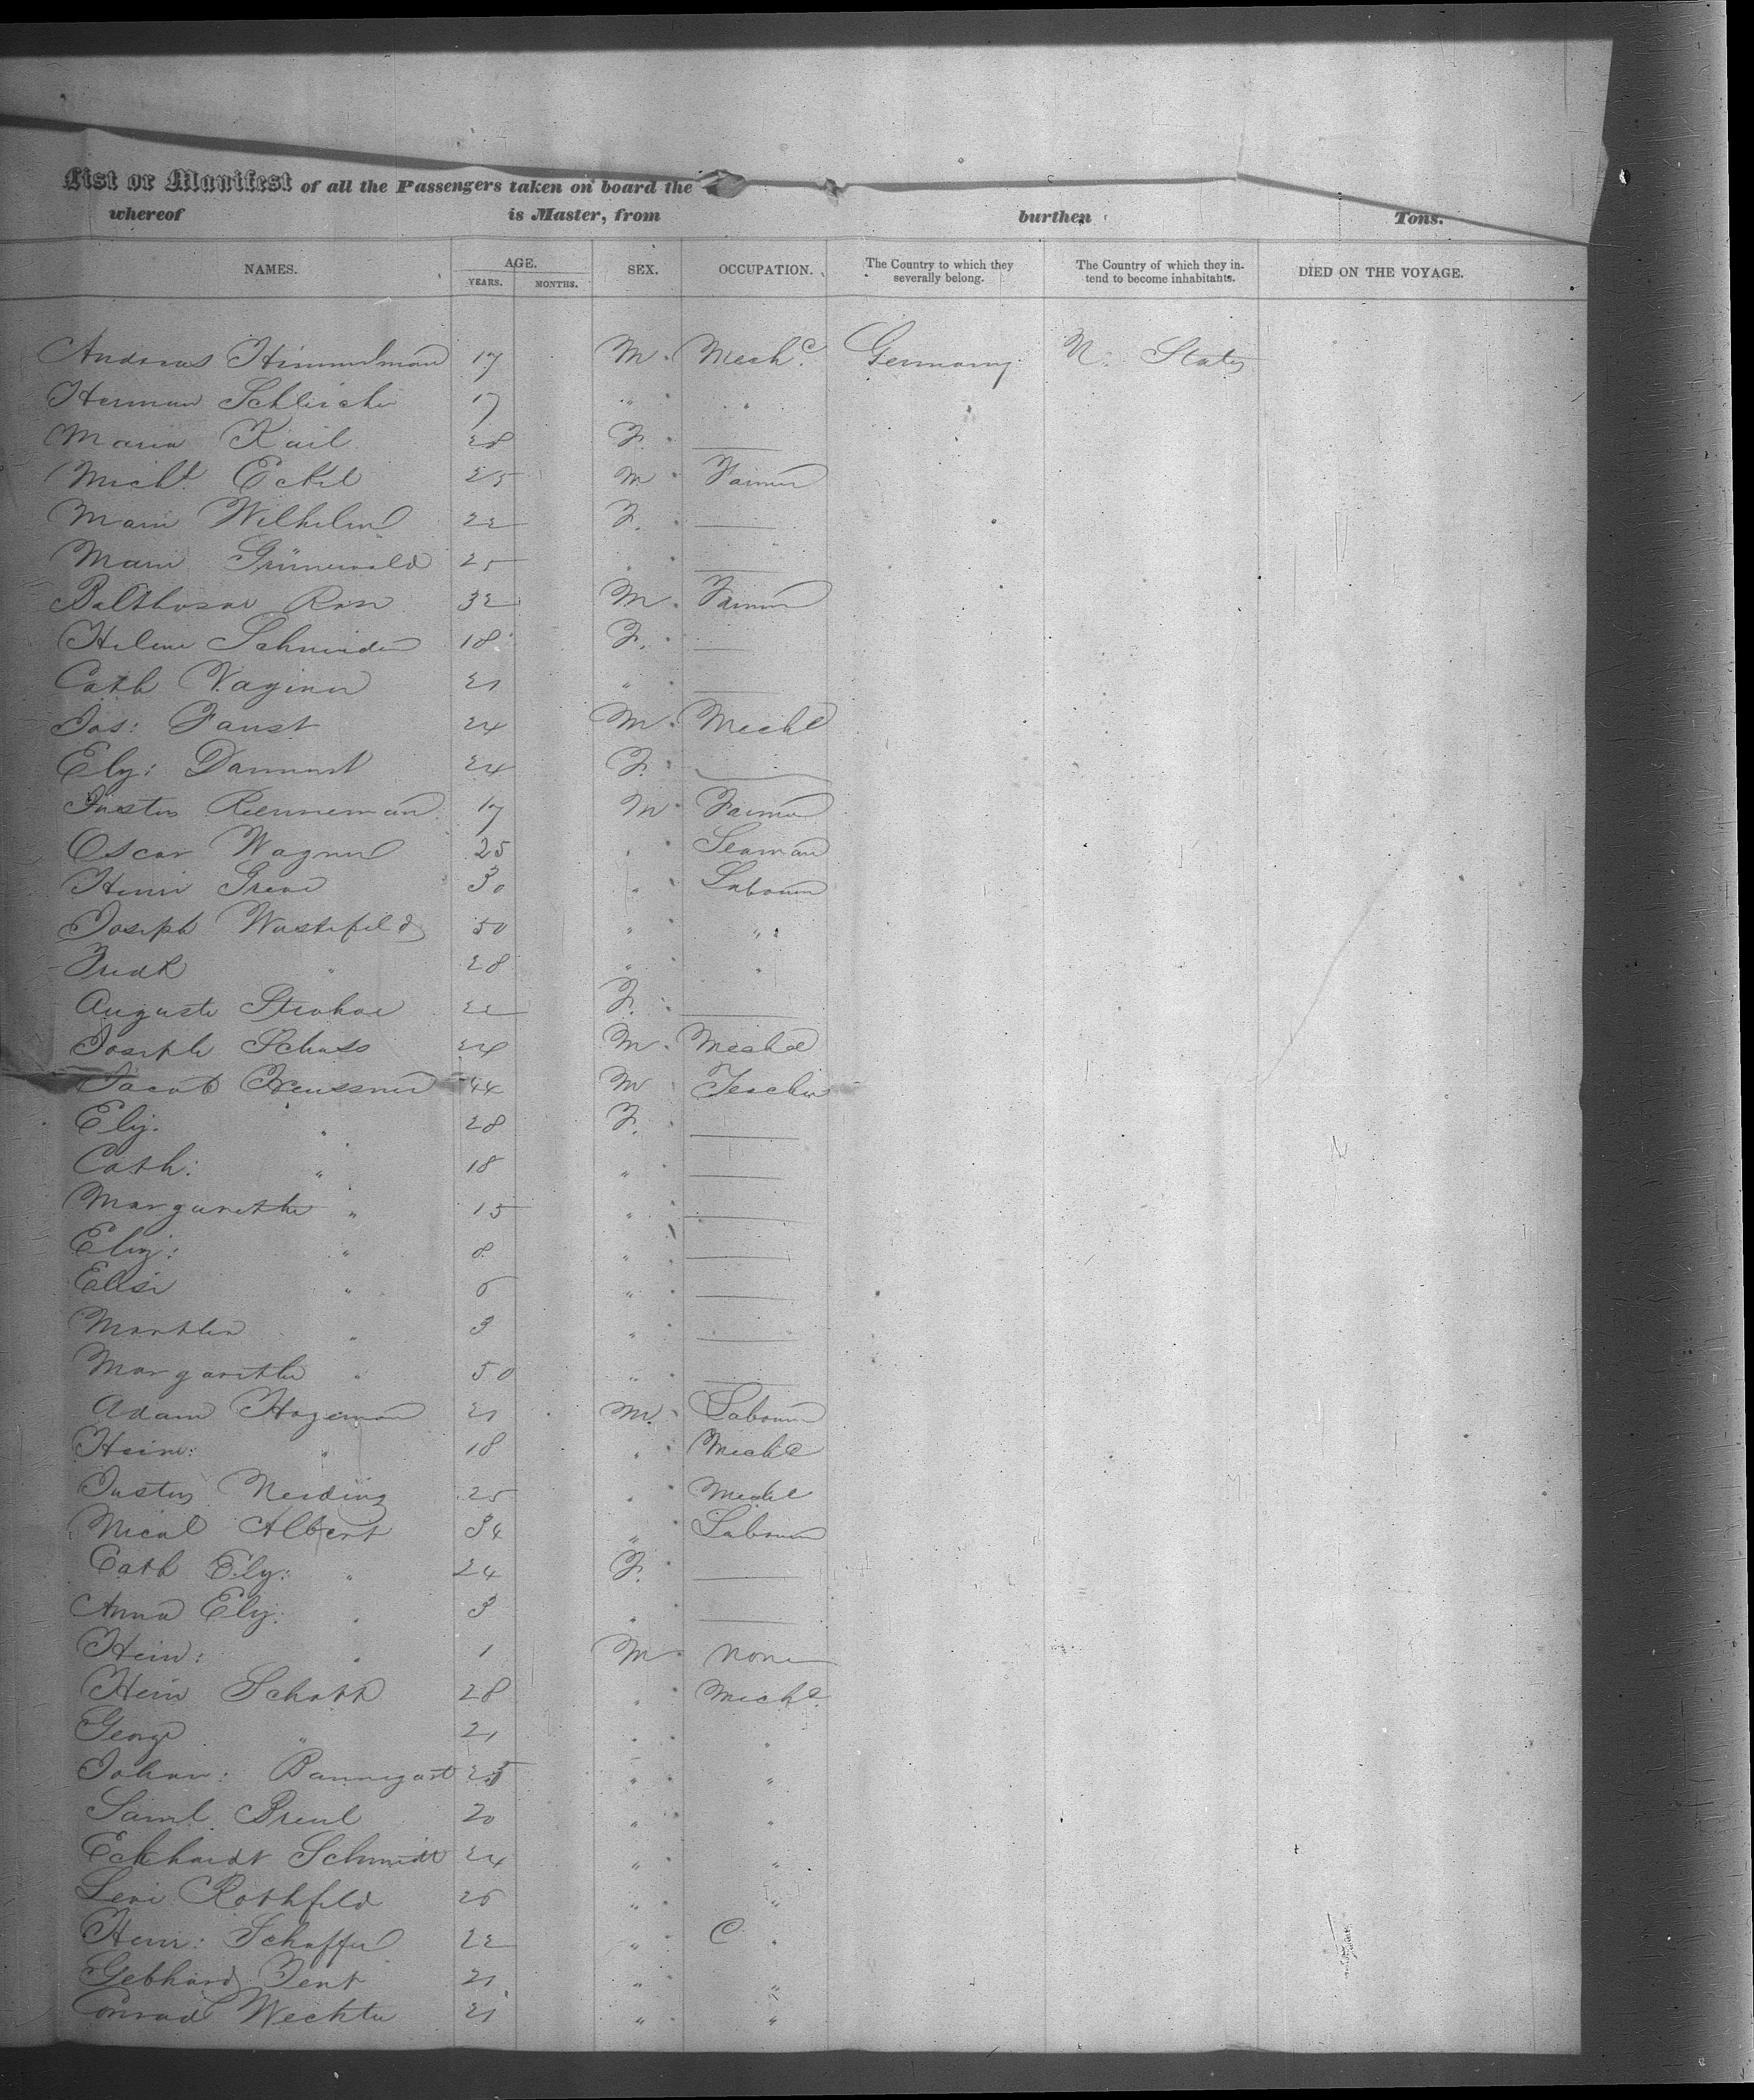 List or Manifest of all the Passengers taken on board the
whereof is Master, from burthen Tons.
NAMES. AGE. YEARS. MONTHS. SEX. OCCUPATION. The Country to which they severally belong. The Country of which they intend to become inhabitants. DIED ON THE VOYAGE.
Andreas Himmelman 17 M. Mech.c Germany U. States
Herman 17 " "
Maria Kail 28 F. —
Michl Eckel 25 M Farmer
Marie Wilhelm 22 F. —
Marie Grünewald 25 " —
Balthasar 32 M. Farmer
Helene Schneider 18 F. —
Cath Wagener 21 " —
Jos: Faust 24 M. Mechc
Ely: 24 F. —
Justus Rienneman 17 M Farmer
Oscar Wagner 25 " Seaman
Henri Greve 30 " Labourer
Joseph Wastefeld 50 " "
Fredk " 28 " "
Auguste 22 F. —
Joseph Schuss 24 M. Mechc
Jacob 44 M Teacher
Eliz. " 28 F. —
Cath: " 18 " —
Margarethe " 15 " —
Eliz: " 8 " —
Elise " 6 " —
Martha " 3 " —
Margarethe " 50 " —
Adam Hageman 21 M. Labourer
Heinr: " 18 " Mechc
Justus Neiding 25 " Mechc
Nicol Albert 34 " Labourer
Cath Ely: " 24 F. —
Anna Eliz: " 3 " —
Hein: " 1 M none
Hein Schott 28 " Mechc
George " 21 " "
Johan: Baumgart 25 " "
Saml Breul 20 " "
Eckhardt Schmidt 24 " "
Levi Rothfeld 26 " "
Henr: Schaffer 22 " C "
Gebhard Zent 21 " "
Conrad Wechter 21 " "